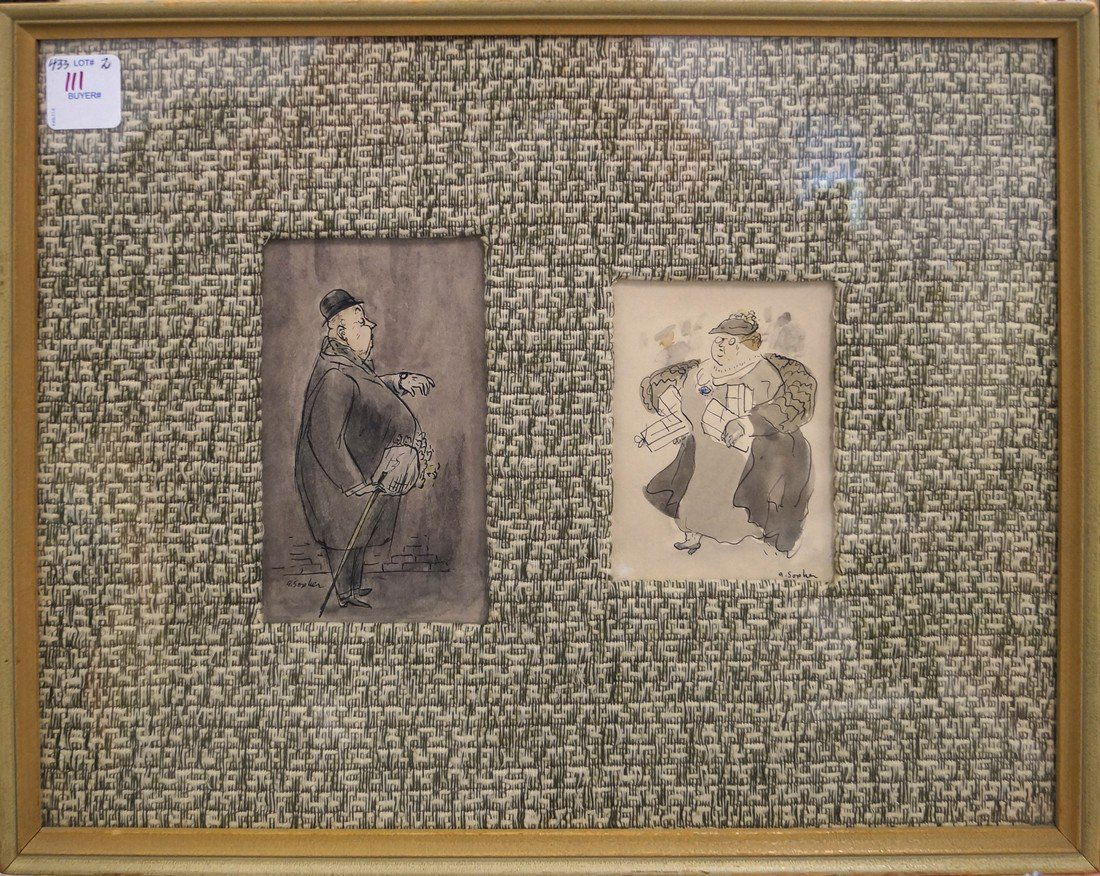 433 LOT# 2
111
BUYER#
A. Sopher
A. Sopher